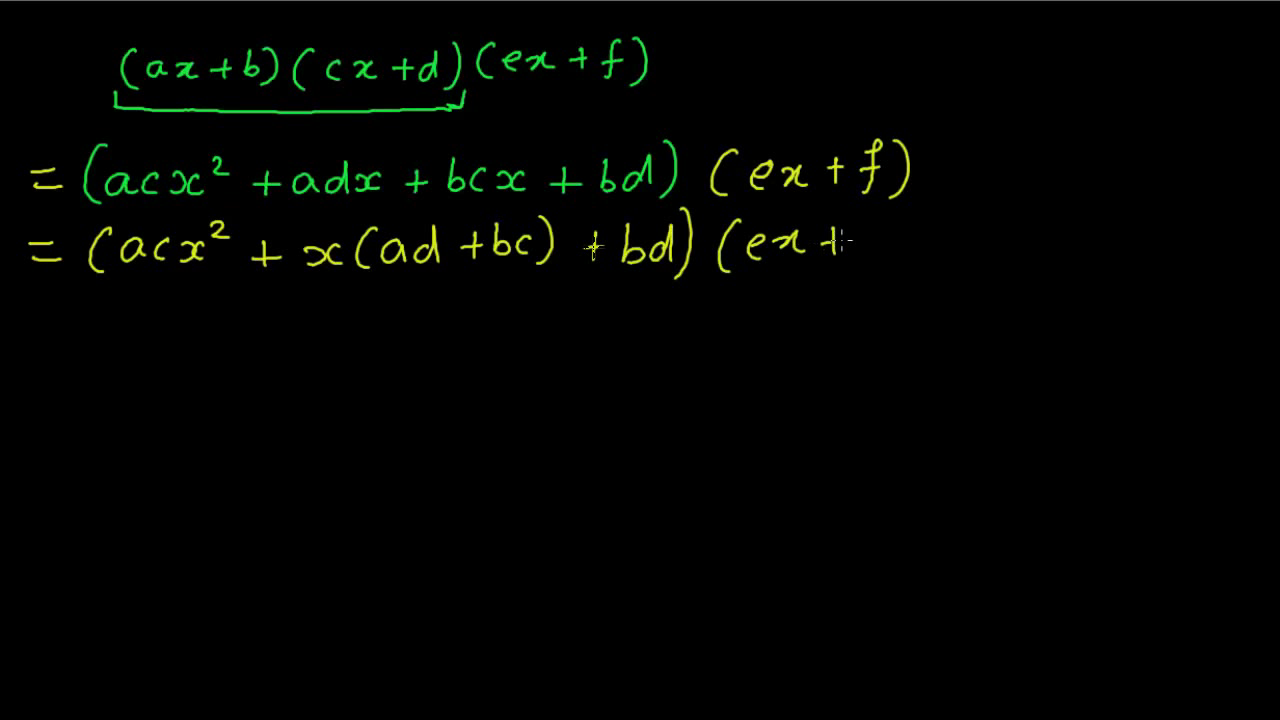 (ax+b)(cx+d)(ex+f)
= (acx² + adx + bcx + bd) (ex+f)
= (acx² + x(ad+bc) + bd) (ex+